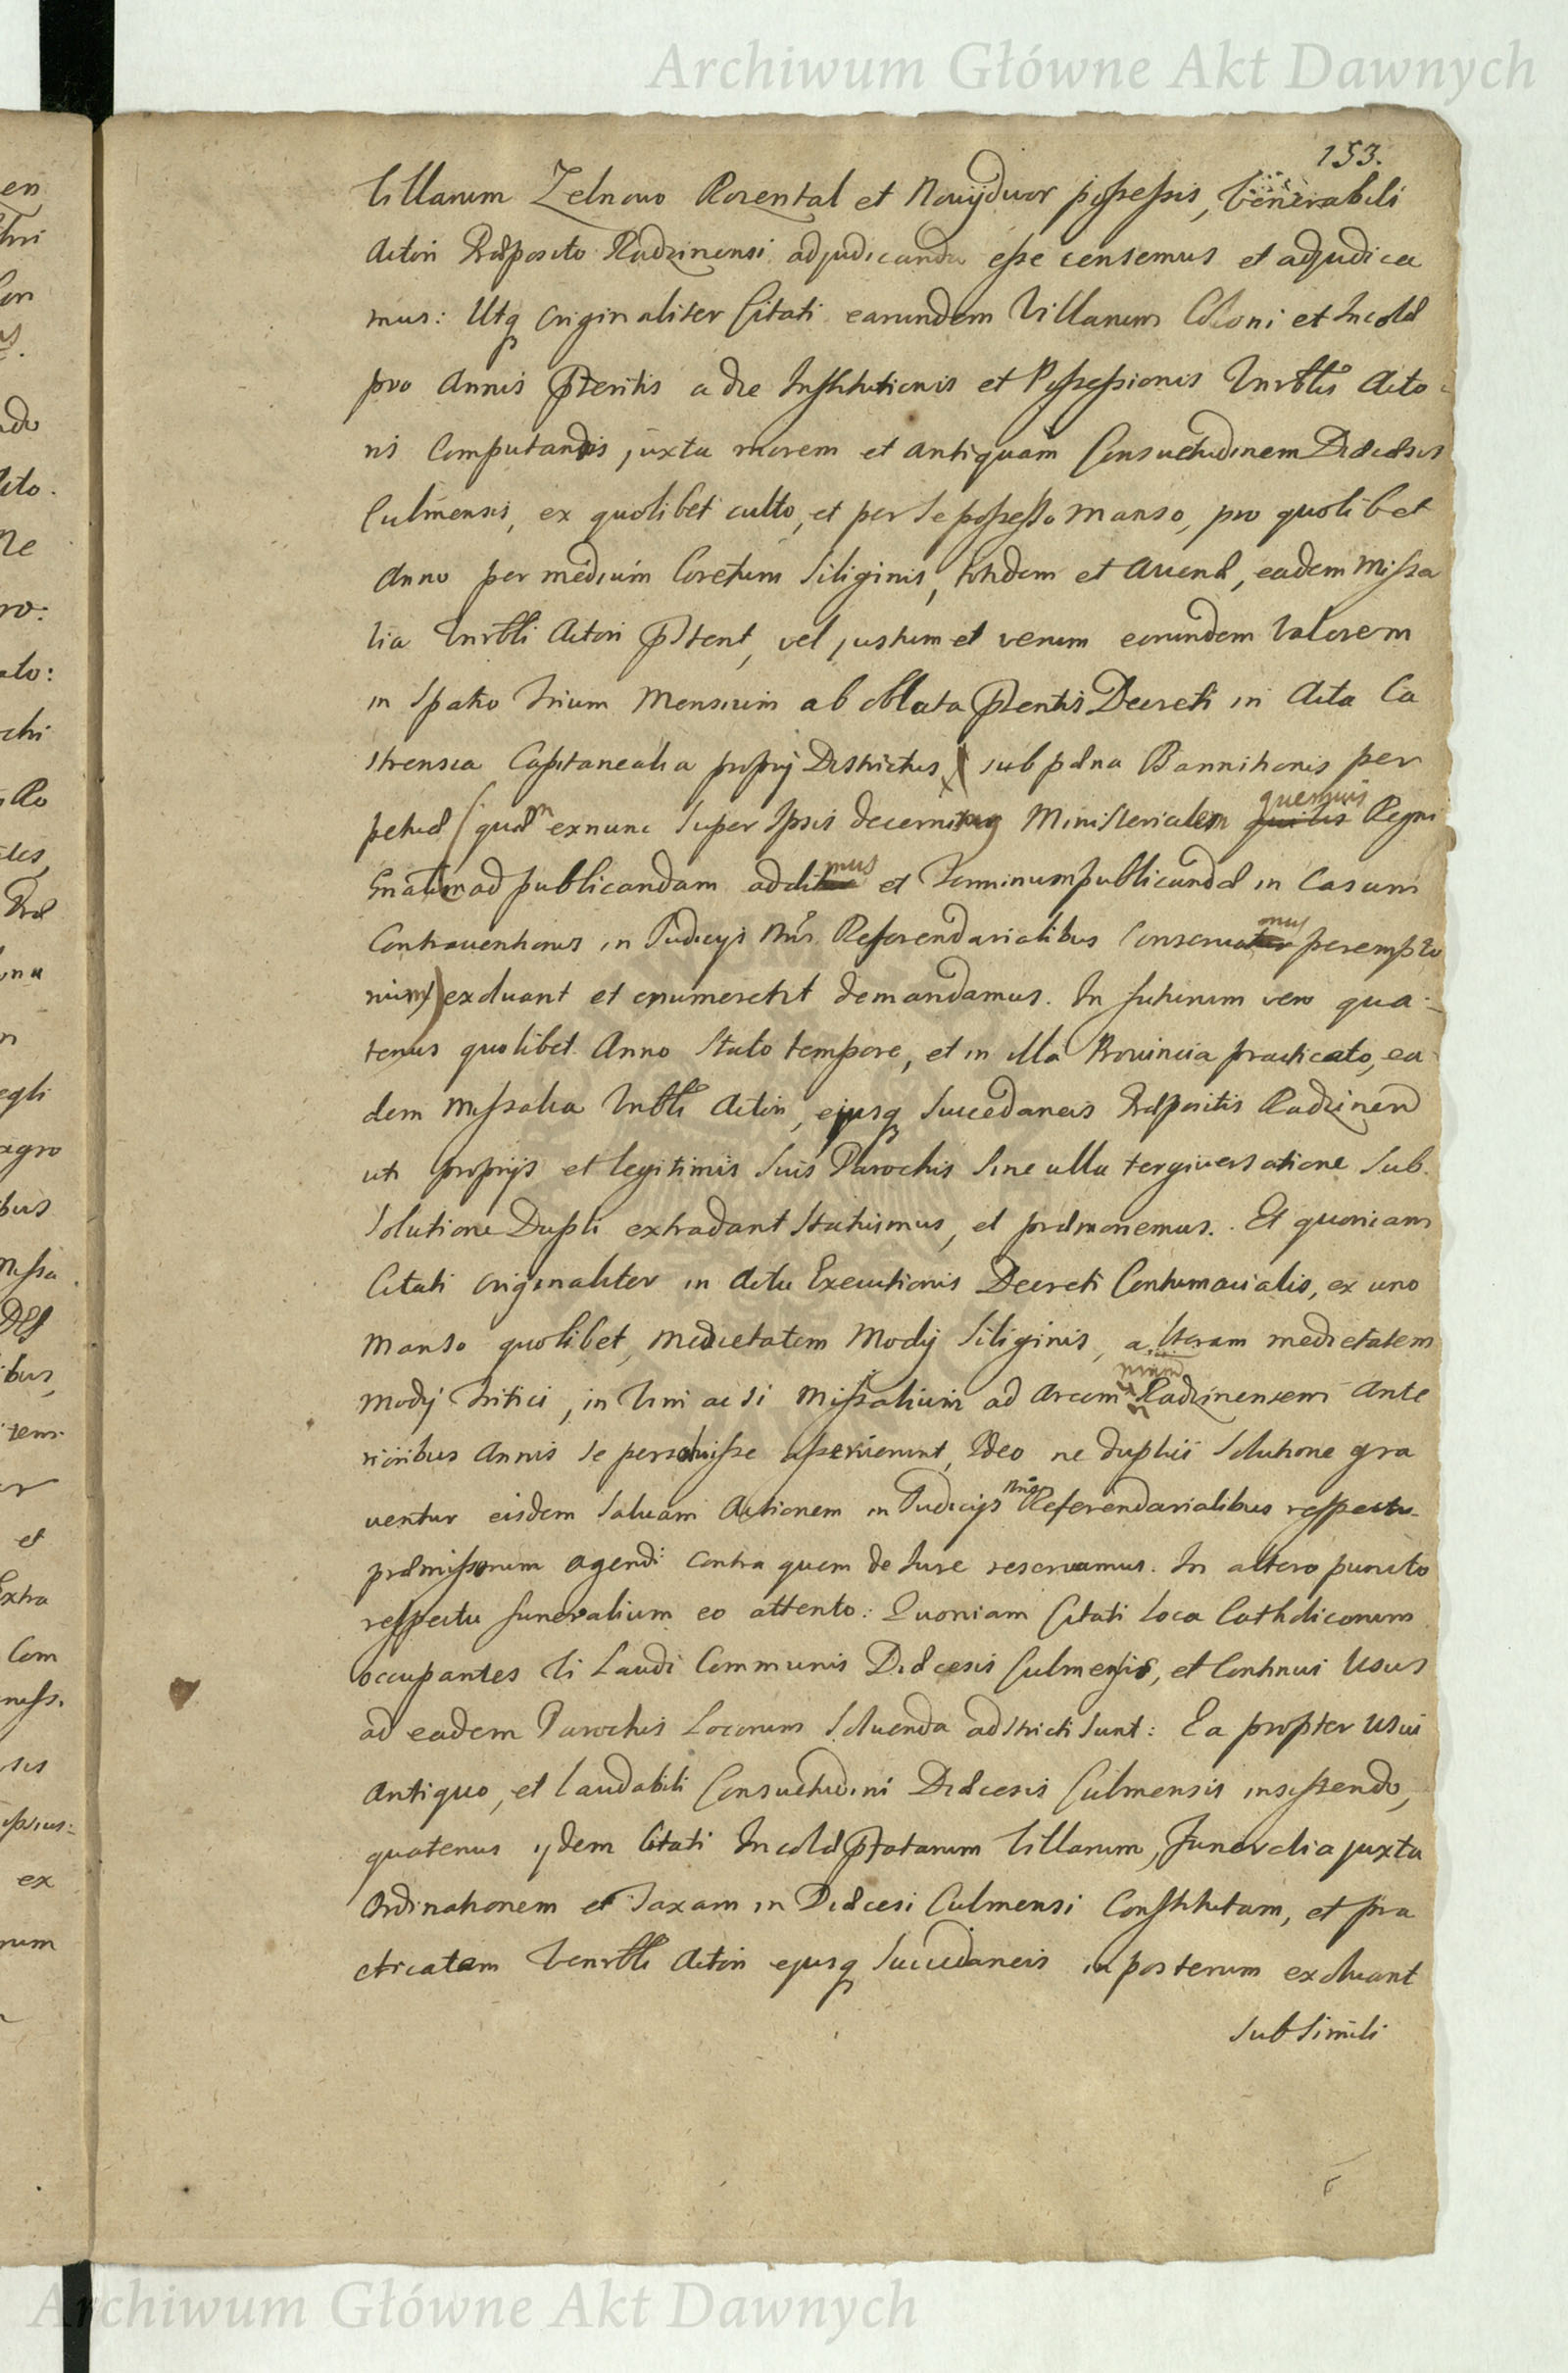 Archiwum Główne Akt Dawnych
153.
Villarum Zelnowo Rozental et Nowydwor possessis, Venerabili
Actori Præposito Radzinensi adjudicanda esse censemus et adjudica
mus: Utq originaliter Citati earundem Villarum Coloni et Incolæ
pro Annis Pteritis a die Institutionis et Possessionis Vnrblis Acto-
ris Computandis juxta morem et antiquam Consuetudinem Diæcesis
Culmensis, ex quolibet culto, et per se possesso Manso, pro quolibet
Anno per medium Coretum Siliginis, totidem et Avenæ, eadem Missa
lia Vnrbli Actori Pstent, vel justum et verum eorundem Valorem
in Spatio trium Mensium ab oblata Pntis Decreti in Acta Ca
strensia Capitanealia proprij Districtus sub pæna Bannitionis per
petuæ (quam exnunc super Ipsis decernimus Ministerialem quemvis Regni
Gnalem ad publicandam addimus et Terminum publicandæ in Casum
Contraventionis in Judicijs Nris Referendarialibus Conservamus perempto
rium) exolvant et enumerent demandamus. In futurum vero qua-
tenus quolibet Anno Stato tempore, et in illa Provincia practicato, ea
dem Missalia Vnrbli Actori, ejusq Succedaneis Præpositis Radzinen
uti proprijs et legitimis Suis Parochis Sine ulla tergiversatione sub
Solutione Dupli extradant Statuimus, et præmonemus. Et quoniam
Citati originaliter in Actu Executionis Decreti Contumacialis, ex uno
Manso quolibet, Medietatem Modij Siliginis, alteram medietatem
Modij Tritici, in Vim ac si Missalium ad Arcem Radzinensem Ante
rioribus Annis se persolvisse asseruerunt, Ideo ne duplici Solutione gra
ventur eisdem Salvam Actionem in Judicijs Nris Referendarialibus respectu
præmissorum agendi contra quem de Jure reservamus. In altero puncto
respectu funeralium eo attento: Quoniam Citati Loca Catholicorum
occupantes Vi Laudi Communis Diæcesis Culmensis, et Continui Usus
ad eadem Parochis Locorum Solvenda adstricti sunt: Ea propter Usui
Antiquo, et laudabili Consuetudini Diæcesis Culmensis insistendo,
quatenus ijdem Citati Incolæ Pfatarum Villarum, Funeralia juxta
Ordinationem et Taxam in Diæcesi Culmensi Constitutam, et pra
cticatam Venrbli Actori ejusq Succedaneis in posterum exolvant
sub simili
Archiwum Główne Akt Dawnych